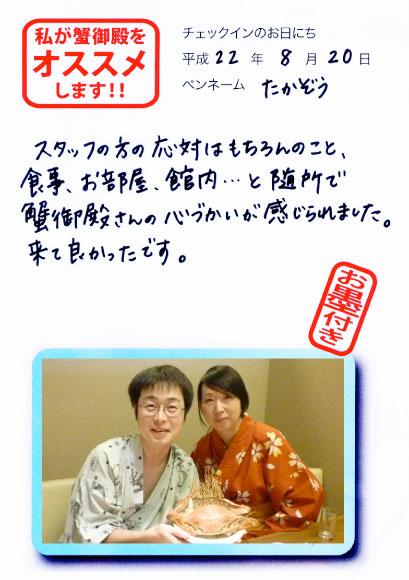 私が蟹御殿を
オススメ
します!!
チェックインのお日にち
平成 22 年 8 月 20 日
ペンネーム たかぞう
スタッフの方の応対はもちろんのこと、
食事、お部屋、館内…と随所で
蟹御殿さんの心づかいが感じられました。
来て良かったです。
お墨付き